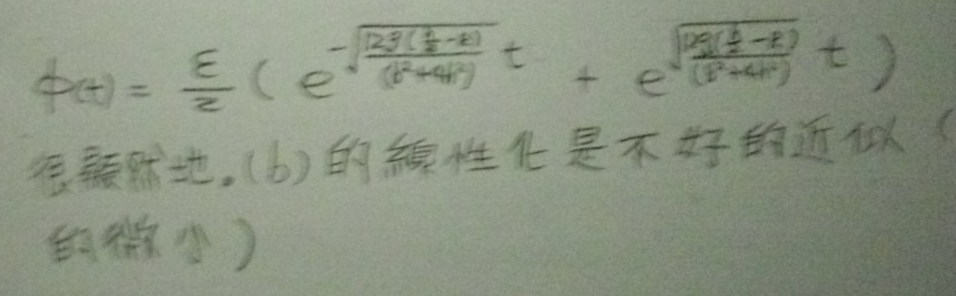 φ(t) = ε/2 ( e^{-√(12g(h/2-R)/(b²+4h²)) t} + e^{√(12g(h/2-R)/(b²+4h²)) t} )
很顯然地。(b)的線性化是不好的近似(
的微小)